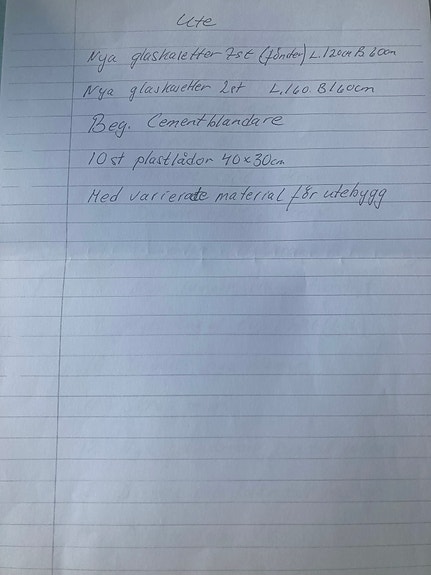 Ute
Nya glaskasetter 7st (fönster) L.120cm B.60cm
Nya glaskasetter 2st L.160. B160cm
Beg. Cementblandare
10st plastlådor 40x30cm
Med varierate material för utebygg